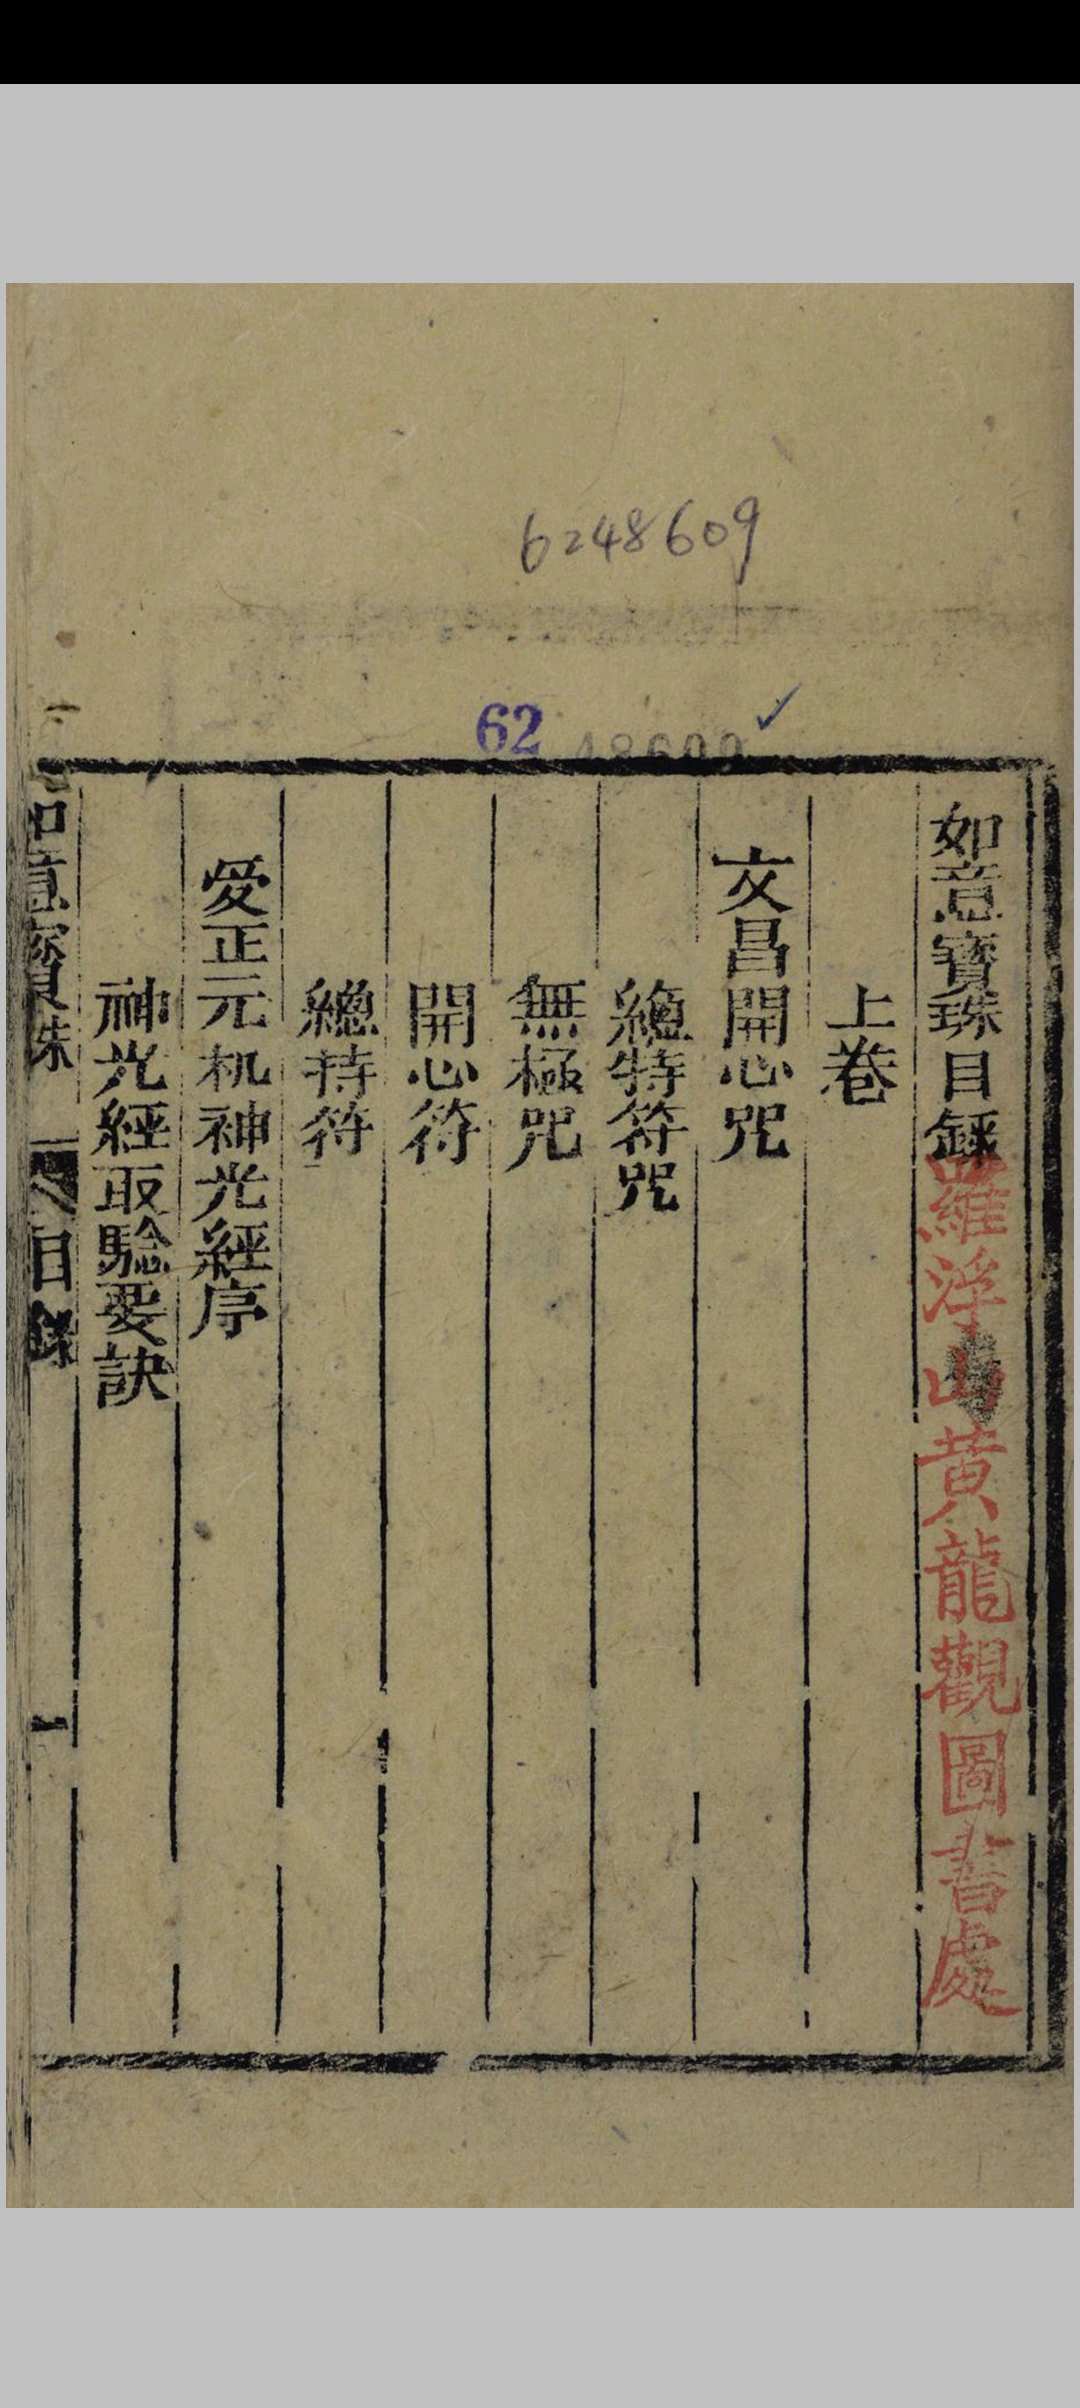 6248609
62 48609
如意寶珠目錄
羅浮山黃龍觀圖書處
上卷
文昌開心咒
總特符咒
無極咒
開心符
總持符
爱正元机神光經序
神光經取驗要訣
如意寶珠 目錄 一